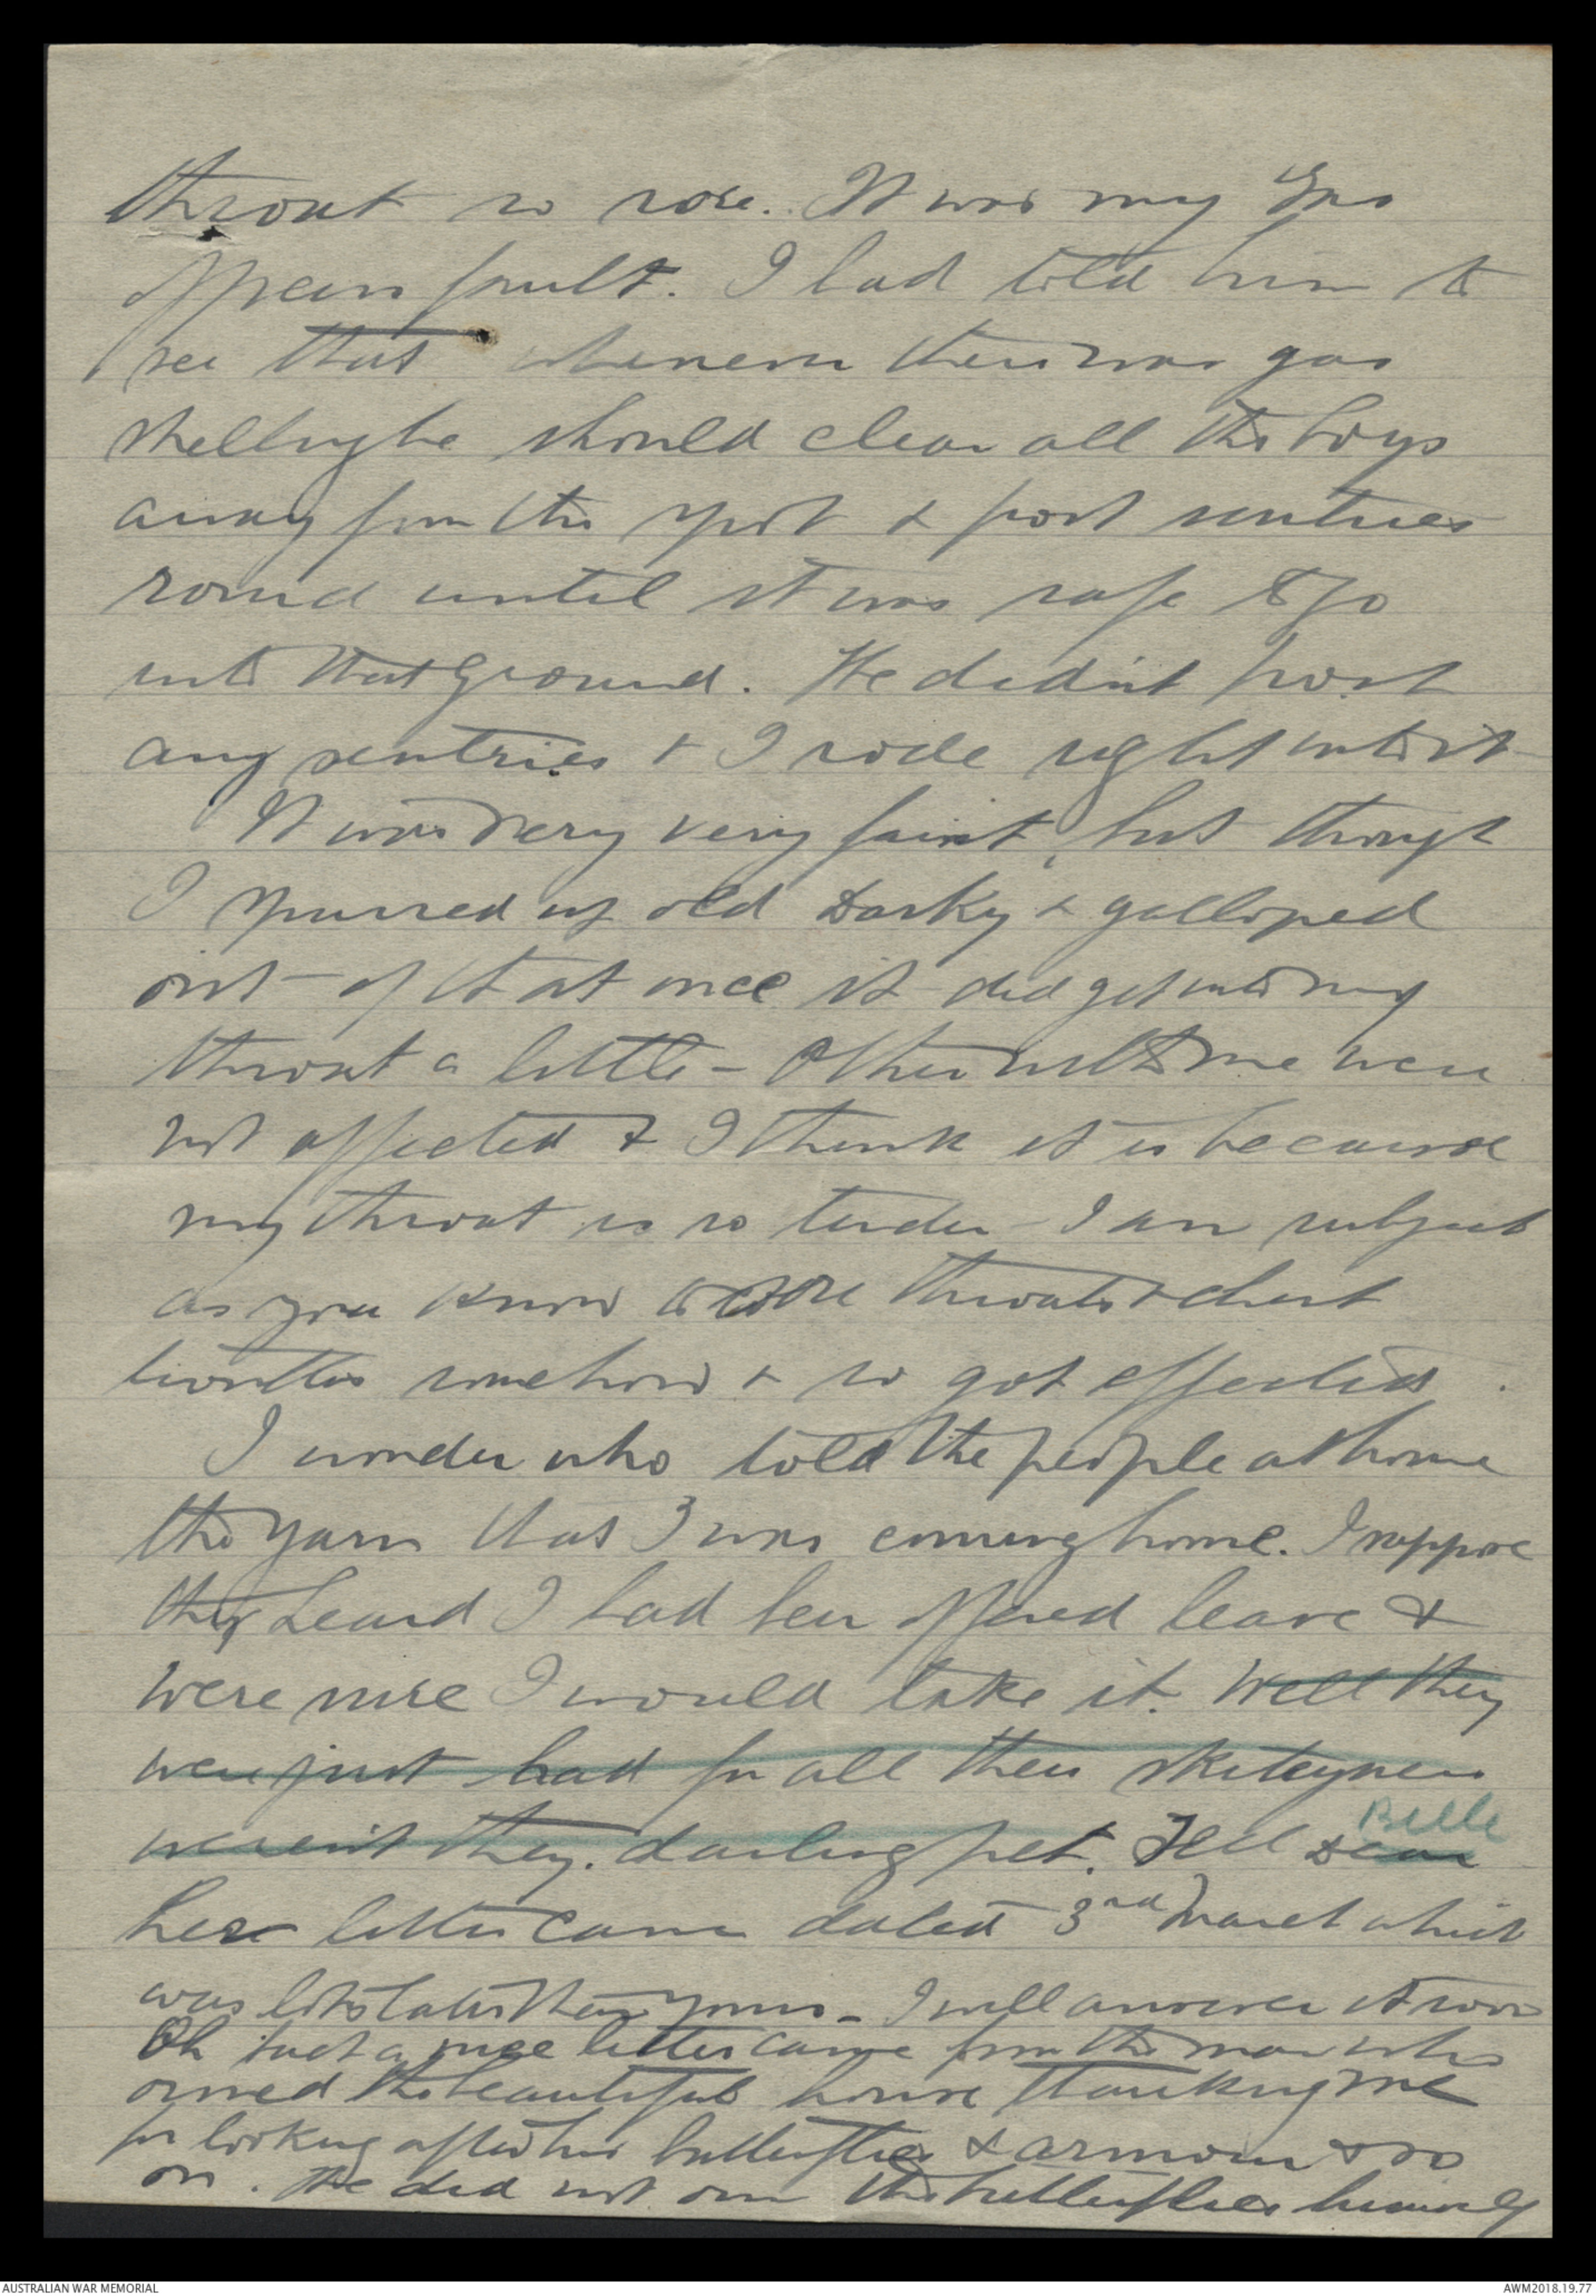 throat so sore. It was my Gas
Officers fault. I had told him to
see that whenever there was gas
shelling he should clear all the boys
away from the spot & post sentries
round until it was safe to go
into that ground. He didn't post
any sentries & I rode right into it
It was very very faint, but though
I spurred up old Darky & galloped
out of it at once it did get into my
throat a little - Others with me were
not affected & I think it is because
my throat is so tender I am subject
as you know to sore throats & chest
troubles somehow & so got affected.
I wonder who told the people at home
the yarn that I was coming home. I suppose
they heard I had been offered leave &
were sure I would take it. Well they
were just had for all their skiteyness
weren't they. darling pet. Tell Dear
Belle
her letter came dated 3rd March which
was lots later than yours - I will answer it soon
Oh such a nice letter came from the man who
owned the beautiful house thanking me
for looking after his butterflies & armour & so
on. He did not own the butterflies himself
AUSTRALIAN WAR MEMORIAL
AWM2018.19.77